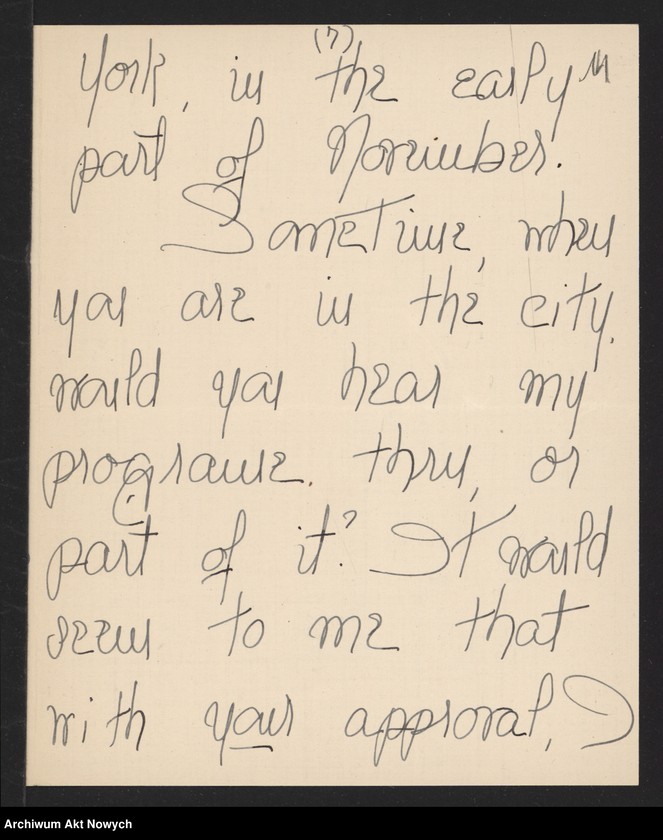 (7)
York, in the early
part of November.
Sometime, when
you are in the city,
would you hear my
programe. thru, or
part of it? It would
seem to me that
with your approval, I
Archiwum Akt Nowych